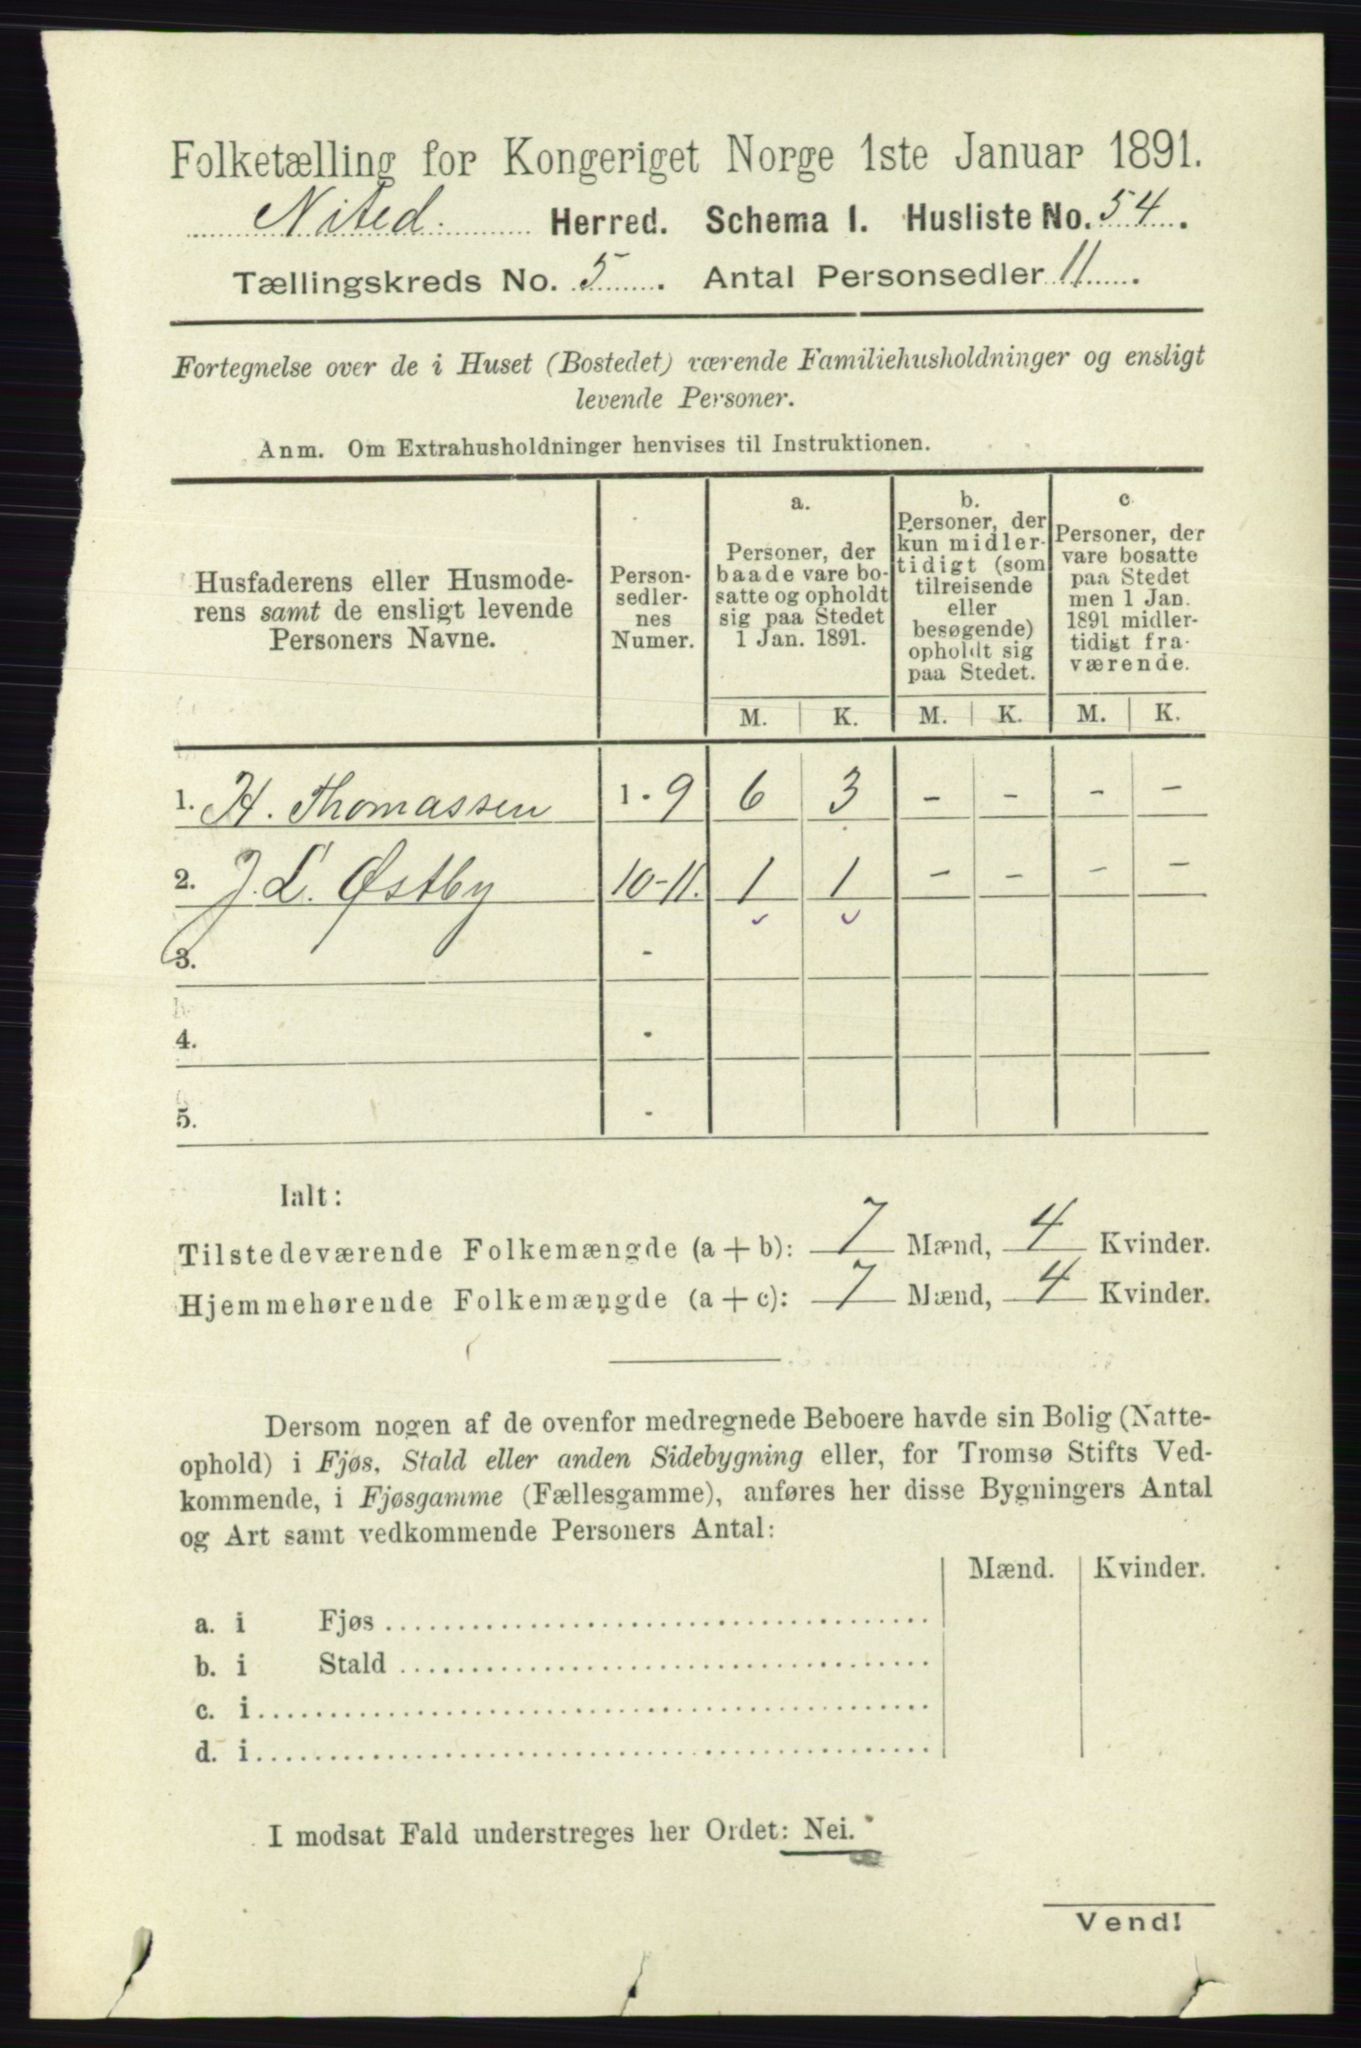 Folketælling for Kongeriget Norge 1ste Januar 1891.
Nited. Herred. Schema I. Husliste No. 54.
Tællingskreds No. 5. Antal Personsedler 11.
Fortegnelse over de i Huset (Bostedet) værende Familiehusholdninger og ensligt
levende Personer.
Anm. Om Extrahusholdninger henvises til Instruktionen.
Husfaderens eller Husmode-
rens samt de ensligt levende
Personers Navne.
Person-
sedler-
nes
Numer.
a.
Personer, der
baade vare bo-
satte og opholdt
sig paa Stedet
1 Jan. 1891.
b.
Personer, der
kun midler-
tidigt (som
tilreisende
eller
besøgende)
opholdt sig
paa Stedet.
c
Personer, der
vare bosatte
paa Stedet
men 1 Jan.
1891 midler-
tidigt fra-
værende.
M. K. M. K. M. K.
1. H. Thomassen 1 - 9 6 3 - - - -
2. J. L. Østby 10-11. 1 1 - - - -
3. -
4. -
5. -
Ialt:
Tilstedeværende Folkemængde (a + b): 7 Mænd, 4 Kvinder.
Hjemmehørende Folkemængde (a + c): 7 Mænd, 4 Kvinder.
Dersom nogen af de ovenfor medregnede Beboere havde sin Bolig (Natte-
ophold) i Fjøs, Stald eller anden Sidebygning eller, for Tromsø Stifts Ved-
kommende, i Fjøsgamme (Fællesgamme), anføres her disse Bygningers Antal
og Art samt vedkommende Personers Antal:
Mænd. Kvinder.
a. i Fjøs
b. i Stald
c. i
d. i
I modsat Fald understreges her Ordet: Nei.
Vend!